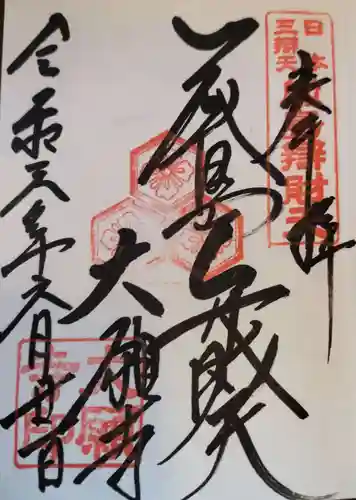 奉拝
日本
三辨天
嚴島辨財天
厳島弁財天
大願寺
令和三年六月
大願
寺印